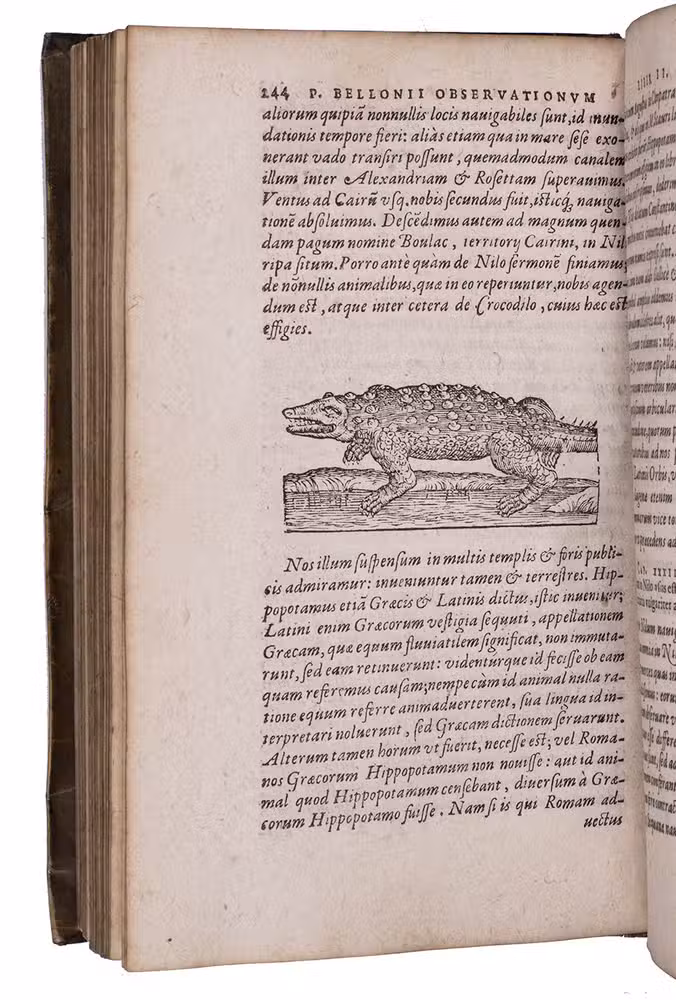 244 P. BELLONII OBSERVATIONVM
aliorum quipiā nonnullis locis nauigabiles ſunt, id inun-
dationis tempore fieri: aliàs etiam qua in mare ſeſe exo-
nerant vado tranſiri poſſunt, quemadmodum canalem
illum inter Alexandriam & Roſettam ſuperauimus.
Ventus ad Cairū vſq. nobis ſecundus fuit, iſticq́; nauiga-
tionē abſoluimus. Deſcēdimus autem ad magnum quen-
dam pagum nomine Boulac, territorij Cairini, in Nil
ripa ſitum. Porro antè quàm de Nilo ſermonē finiamus,
de nōnullis animalibus, quæ in eo reperiuntur, nobis agen-
dum eſt, atque inter cetera de Crocodilo, cuius hæc eſt
effigies.
Nos illum ſuſpenſum in multis templis & foris publi-
cis admiramur: inueniuntur tamen & terreſtres. Hip-
popotamus etiā Græcis & Latinis dictus, iſtic inuenitur;
Latini enim Græcorum veſtigia ſequuti, appellationem
Græcam, quæ equum fluuiatilem ſignificat, non immuta-
runt, ſed eam retinuerunt: videnturque id feciſſe ob eam
quam referemus cauſam; nempe cùm id animal nulla ra-
tione equum referre animaduerterent, ſua lingua id in-
terpretari noluerunt, ſed Græcam dictionem ſeruarunt.
Alterum tamen horum vt fuerit, neceſſe eſt; vel Roma-
nos Græcorum Hippopotamum non nouiſſe: aut id ani-
mal quod Hippopotamum cenſebant, diuerſum à Græ-
corum Hippopotamo fuiſſe. Nam ſi is qui Romam ad-
uectus